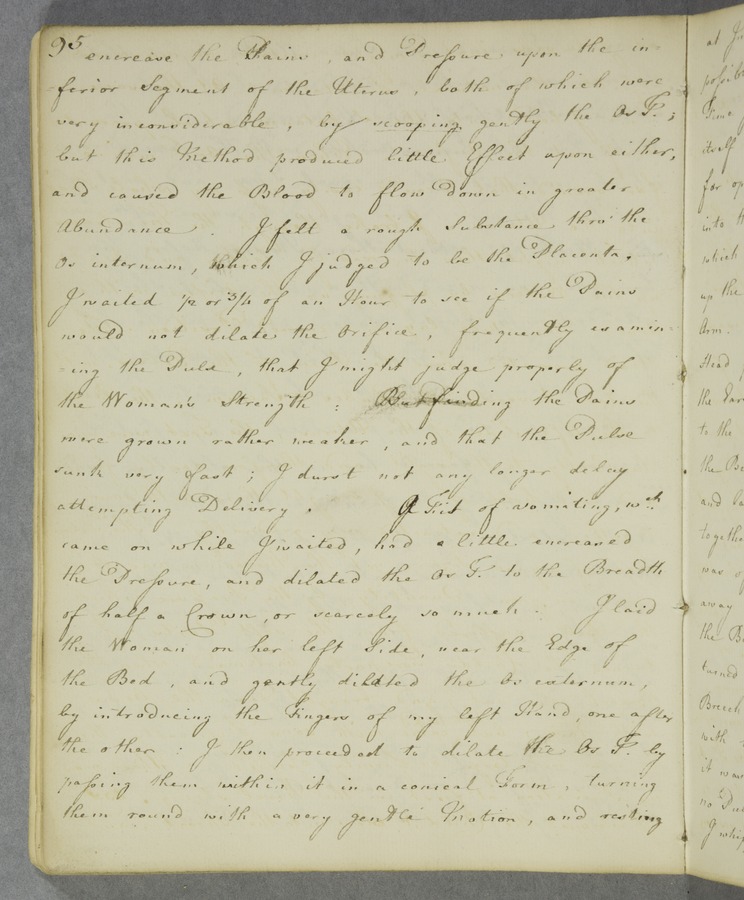 95 encrease the Pains, and Pressure upon the in-
ferior Segment of the Uterus, both of which were
very inconsiderable, by scooping gently the Os T.;
but this Method produced little Effect upon either,
and caused the Blood to flow down in greater
Abundance. I felt a rough Substance thro' the
Os internum, which I judged to be the Placenta.
I waited 1/2 or 3/4 of an Hour to see if the Pains
would not dilate the Orifice, frequently examin-
-ing the Pulse, that I might judge properly of
the Woman's Strength: But finding the Pains
were grown rather weaker, and that the Pulse
sunk very fast; I durst not any longer delay
attempting Delivery. A Fit of vomiting, wch.
came on while I waited, had a little encreased
the Pressure, and dilated the Os T. to the Breadth
of half a Crown, or scarcely so much: I laid
the Woman on her left Side, near the Edge of
the Bed, and gently dilated the Os externum,
by introducing the Fingers of my left Hand, one after
the other: I then proceeded to dilate the Os T. by
passing them within it in a conical Form, turning
them round with a very gentle Motion, and resting
at
possib
Time
itself
for op
into th
which
up the
Arm.
Head
the
to the
the
and
togethe
was of
away
the
turned
Breech
with
it was
no Pul
I whip